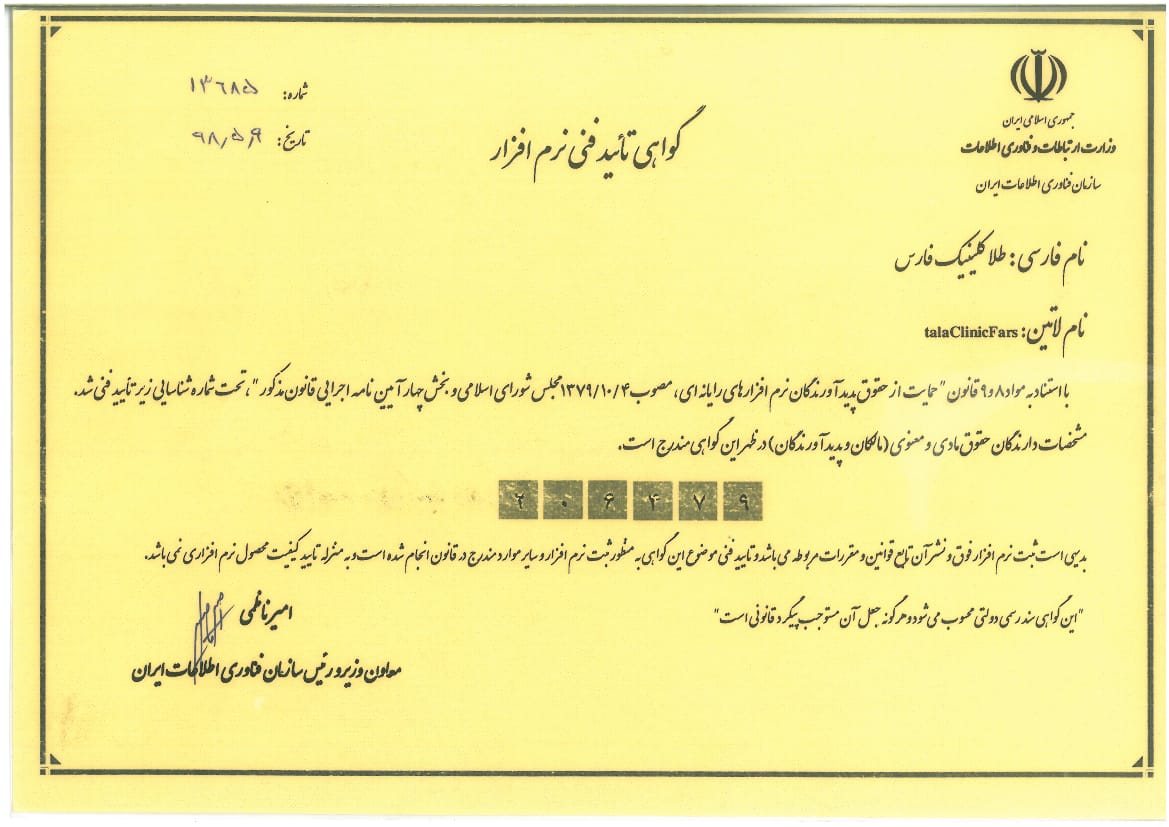 جمهوری اسلامی ایران
وزارت ارتباطات و فناوری اطلاعات
سازمان فناوری اطلاعات ایران
شماره: ۱۳۶۸۵
تاریخ: ۹۸٫۵٫۹
گواهی تأئید فنی نرم افزار
نام فارسی: طلا کلینیک فارس
نام لاتین: talaClinicFars
با استناد به مواد ۸ و ۹ قانون "حمایت از حقوق پدید آورندگان نرم افزارهای رایانه ای، مصوب ۱۳۷۹/۱۰/۴ مجلس شورای اسلامی و بخش چهار آیین نامه اجرایی قانون مذکور"، تحت شماره شناسایی زیر تأیید فنی شد.
مشخصات دارندگان حقوق مادی و معنوی (مالکان و پدید آورندگان) در ظهر این گواهی مندرج است.
۲ ۰ ۶ ۴ ۷ ۹
بدیهی است ثبت نرم افزار فوق و نشر آن تابع قوانین و مقررات مربوطه می باشد و تایید فنی موضوع این گواهی به منظور ثبت نرم افزار و سایر موارد مندرج در قانون انجام شده است و به منزله تایید کیفیت محصول نرم افزاری نمی باشد.
"این گواهی سند رسمی دولتی محسوب می شود و هرگونه جعل آن مستوجب پیگرد قانونی است"
امیر ناظمی
معاون وزیر و رئیس سازمان فناوری اطلاعات ایران